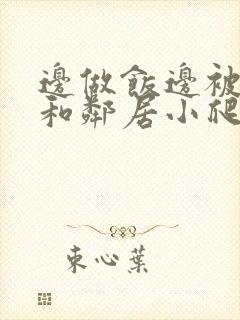 邊做飯邊被
和鄰居小爬
束心葉